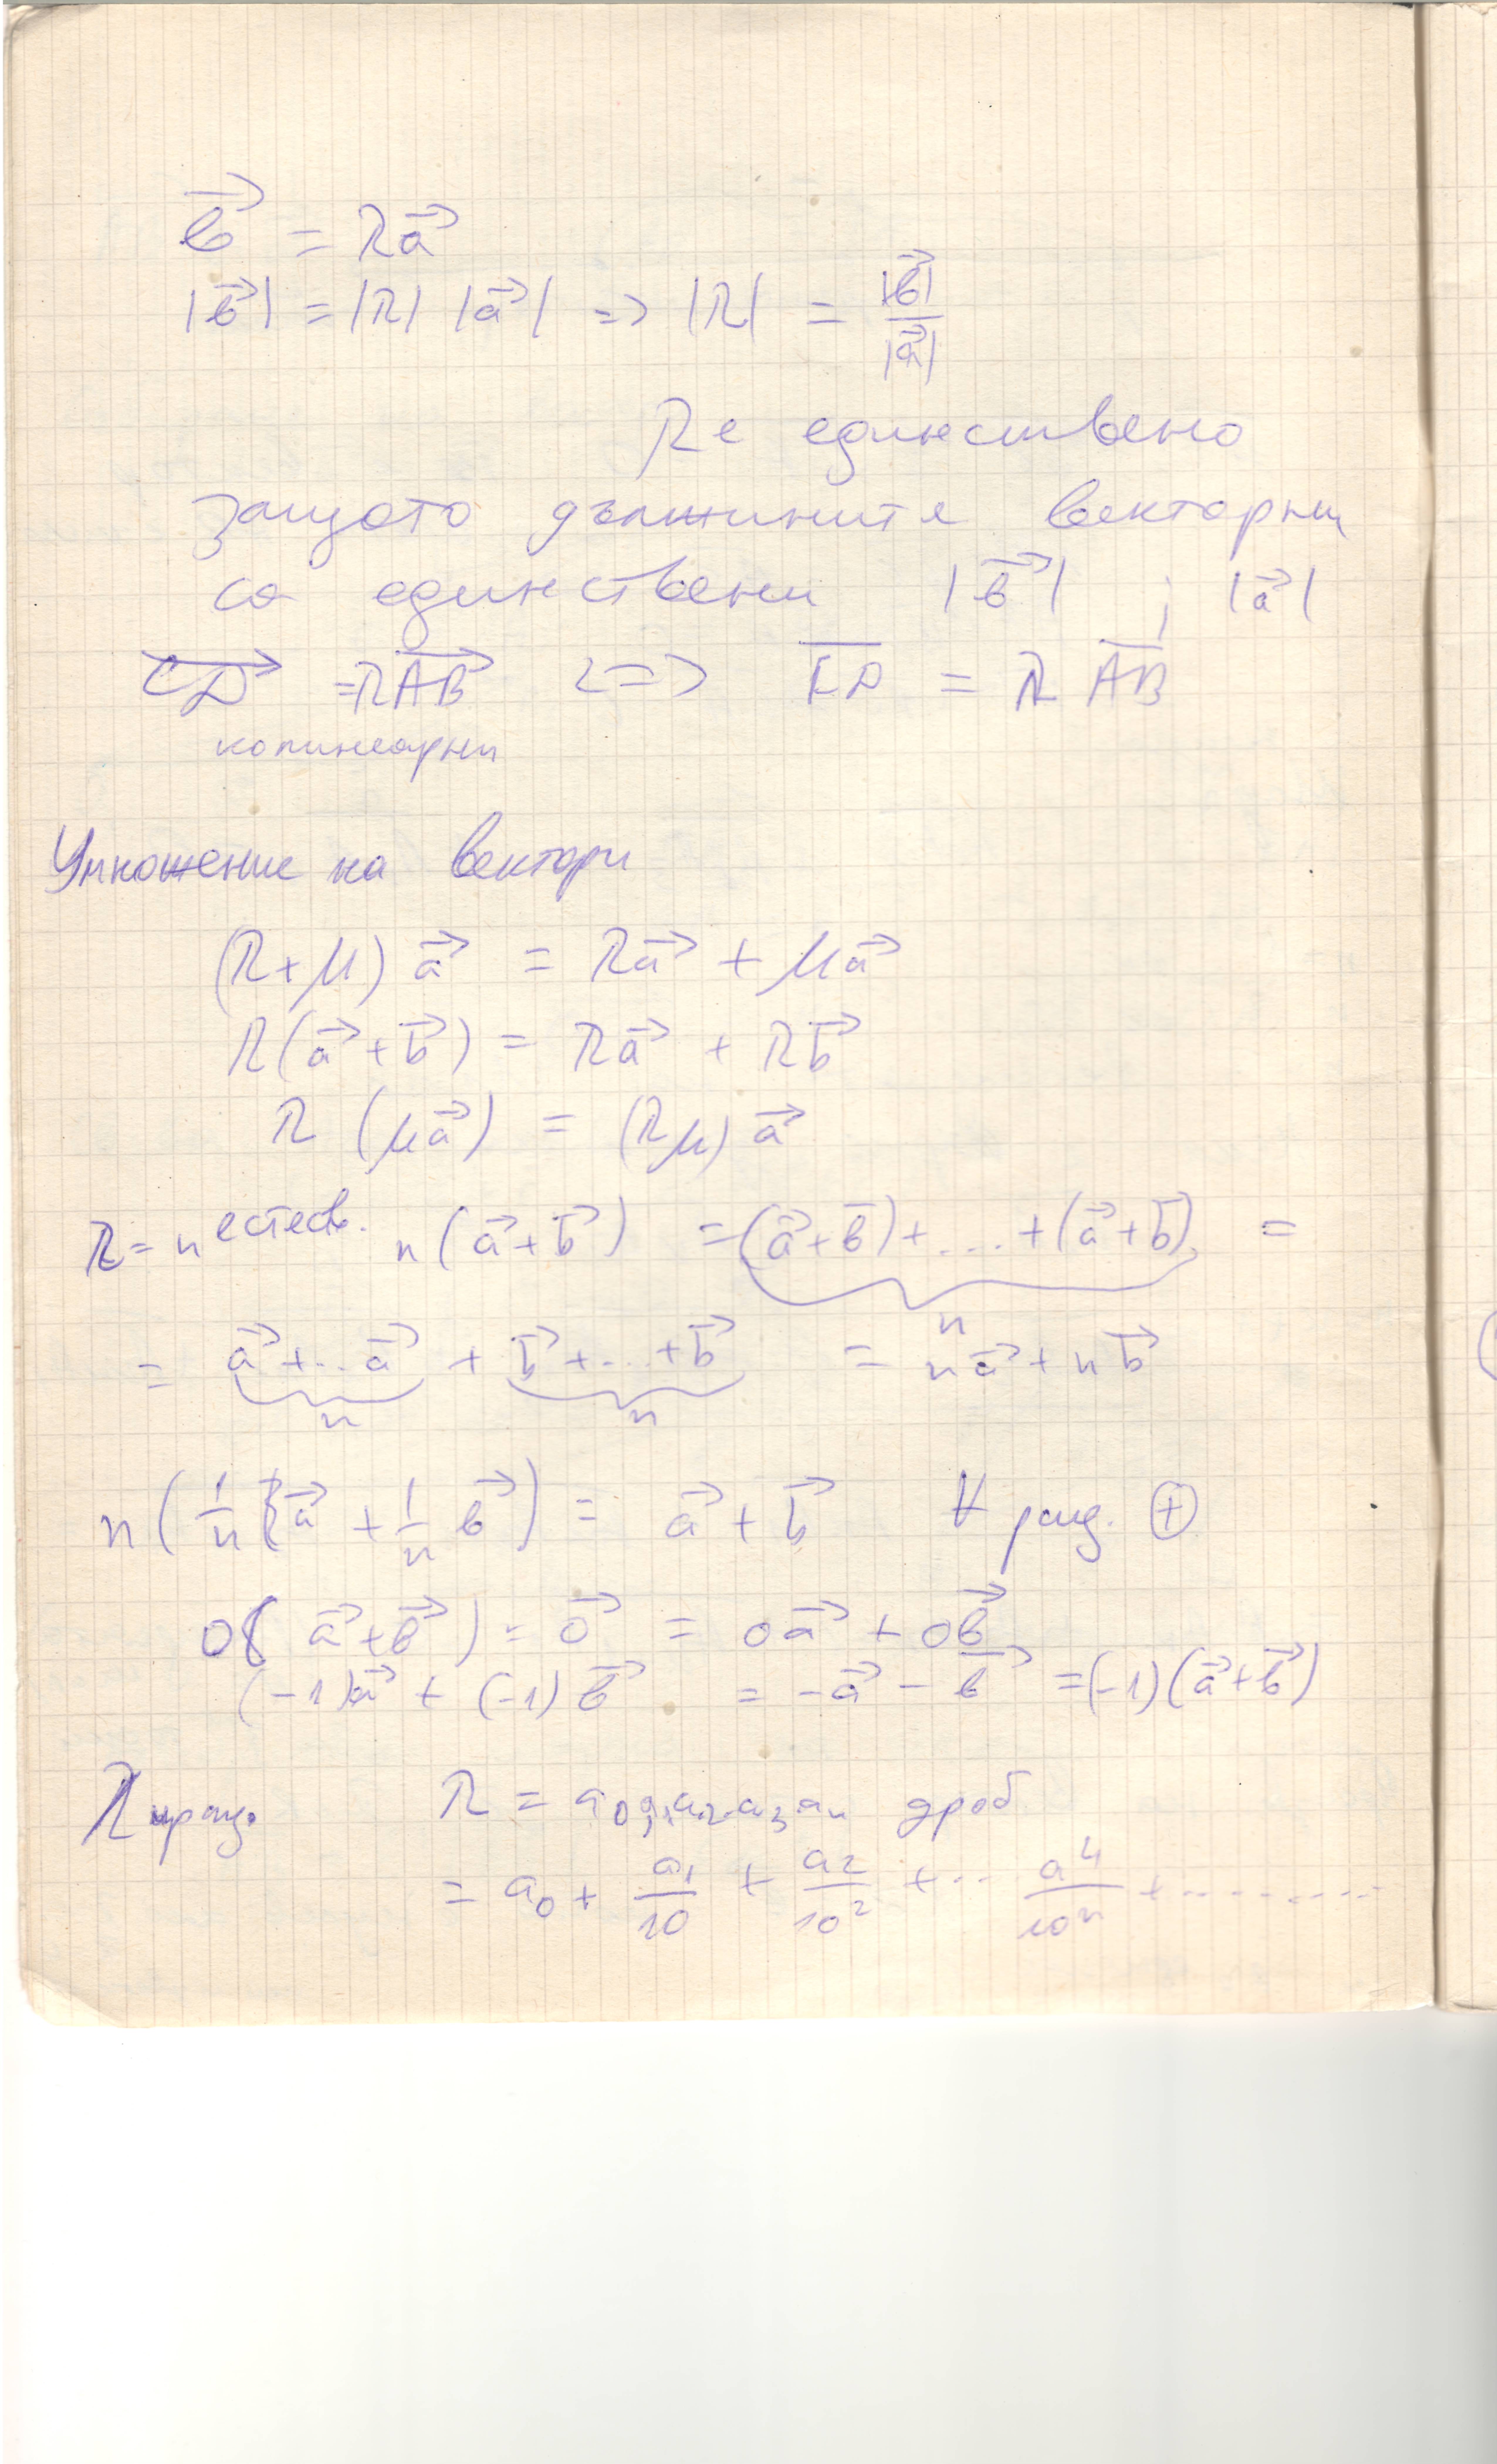 b⃗ = λa⃗
|b⃗| = |λ| |a⃗| => |λ| = |b⃗| / |a⃗|
λ е единствено
защото дължините векторни
са единствени |b⃗| ; |a⃗|
CD⃗ = λAB⃗ <=> C̅D̅ = λ A̅B̅
колинеарни
Умножение на вектори
(λ+μ) a⃗ = λa⃗ + μa⃗
λ(a⃗+b⃗) = λa⃗ + λb⃗
λ (μa⃗) = (λμ) a⃗
λ = n естеств. n(a⃗+b⃗) = (a⃗+b⃗)+....+(a⃗+b⃗) =
n
= a⃗+...a⃗ + b⃗+...+b⃗ = na⃗+nb⃗
n n
n(1/n a⃗ + 1/n b⃗) = a⃗+b⃗ ∀ рац. ⊕
0(a⃗+b⃗) = 0⃗ = 0a⃗ + 0b⃗
(-1)a⃗ + (-1)b⃗ = -a⃗ - b⃗ = (-1)(a⃗+b⃗)
λ ирац. λ = a₀,a₁a₂a₃aₙ дроб
= a₀ + a₁/10 + a₂/10² + ... a⁴/10ⁿ + .........